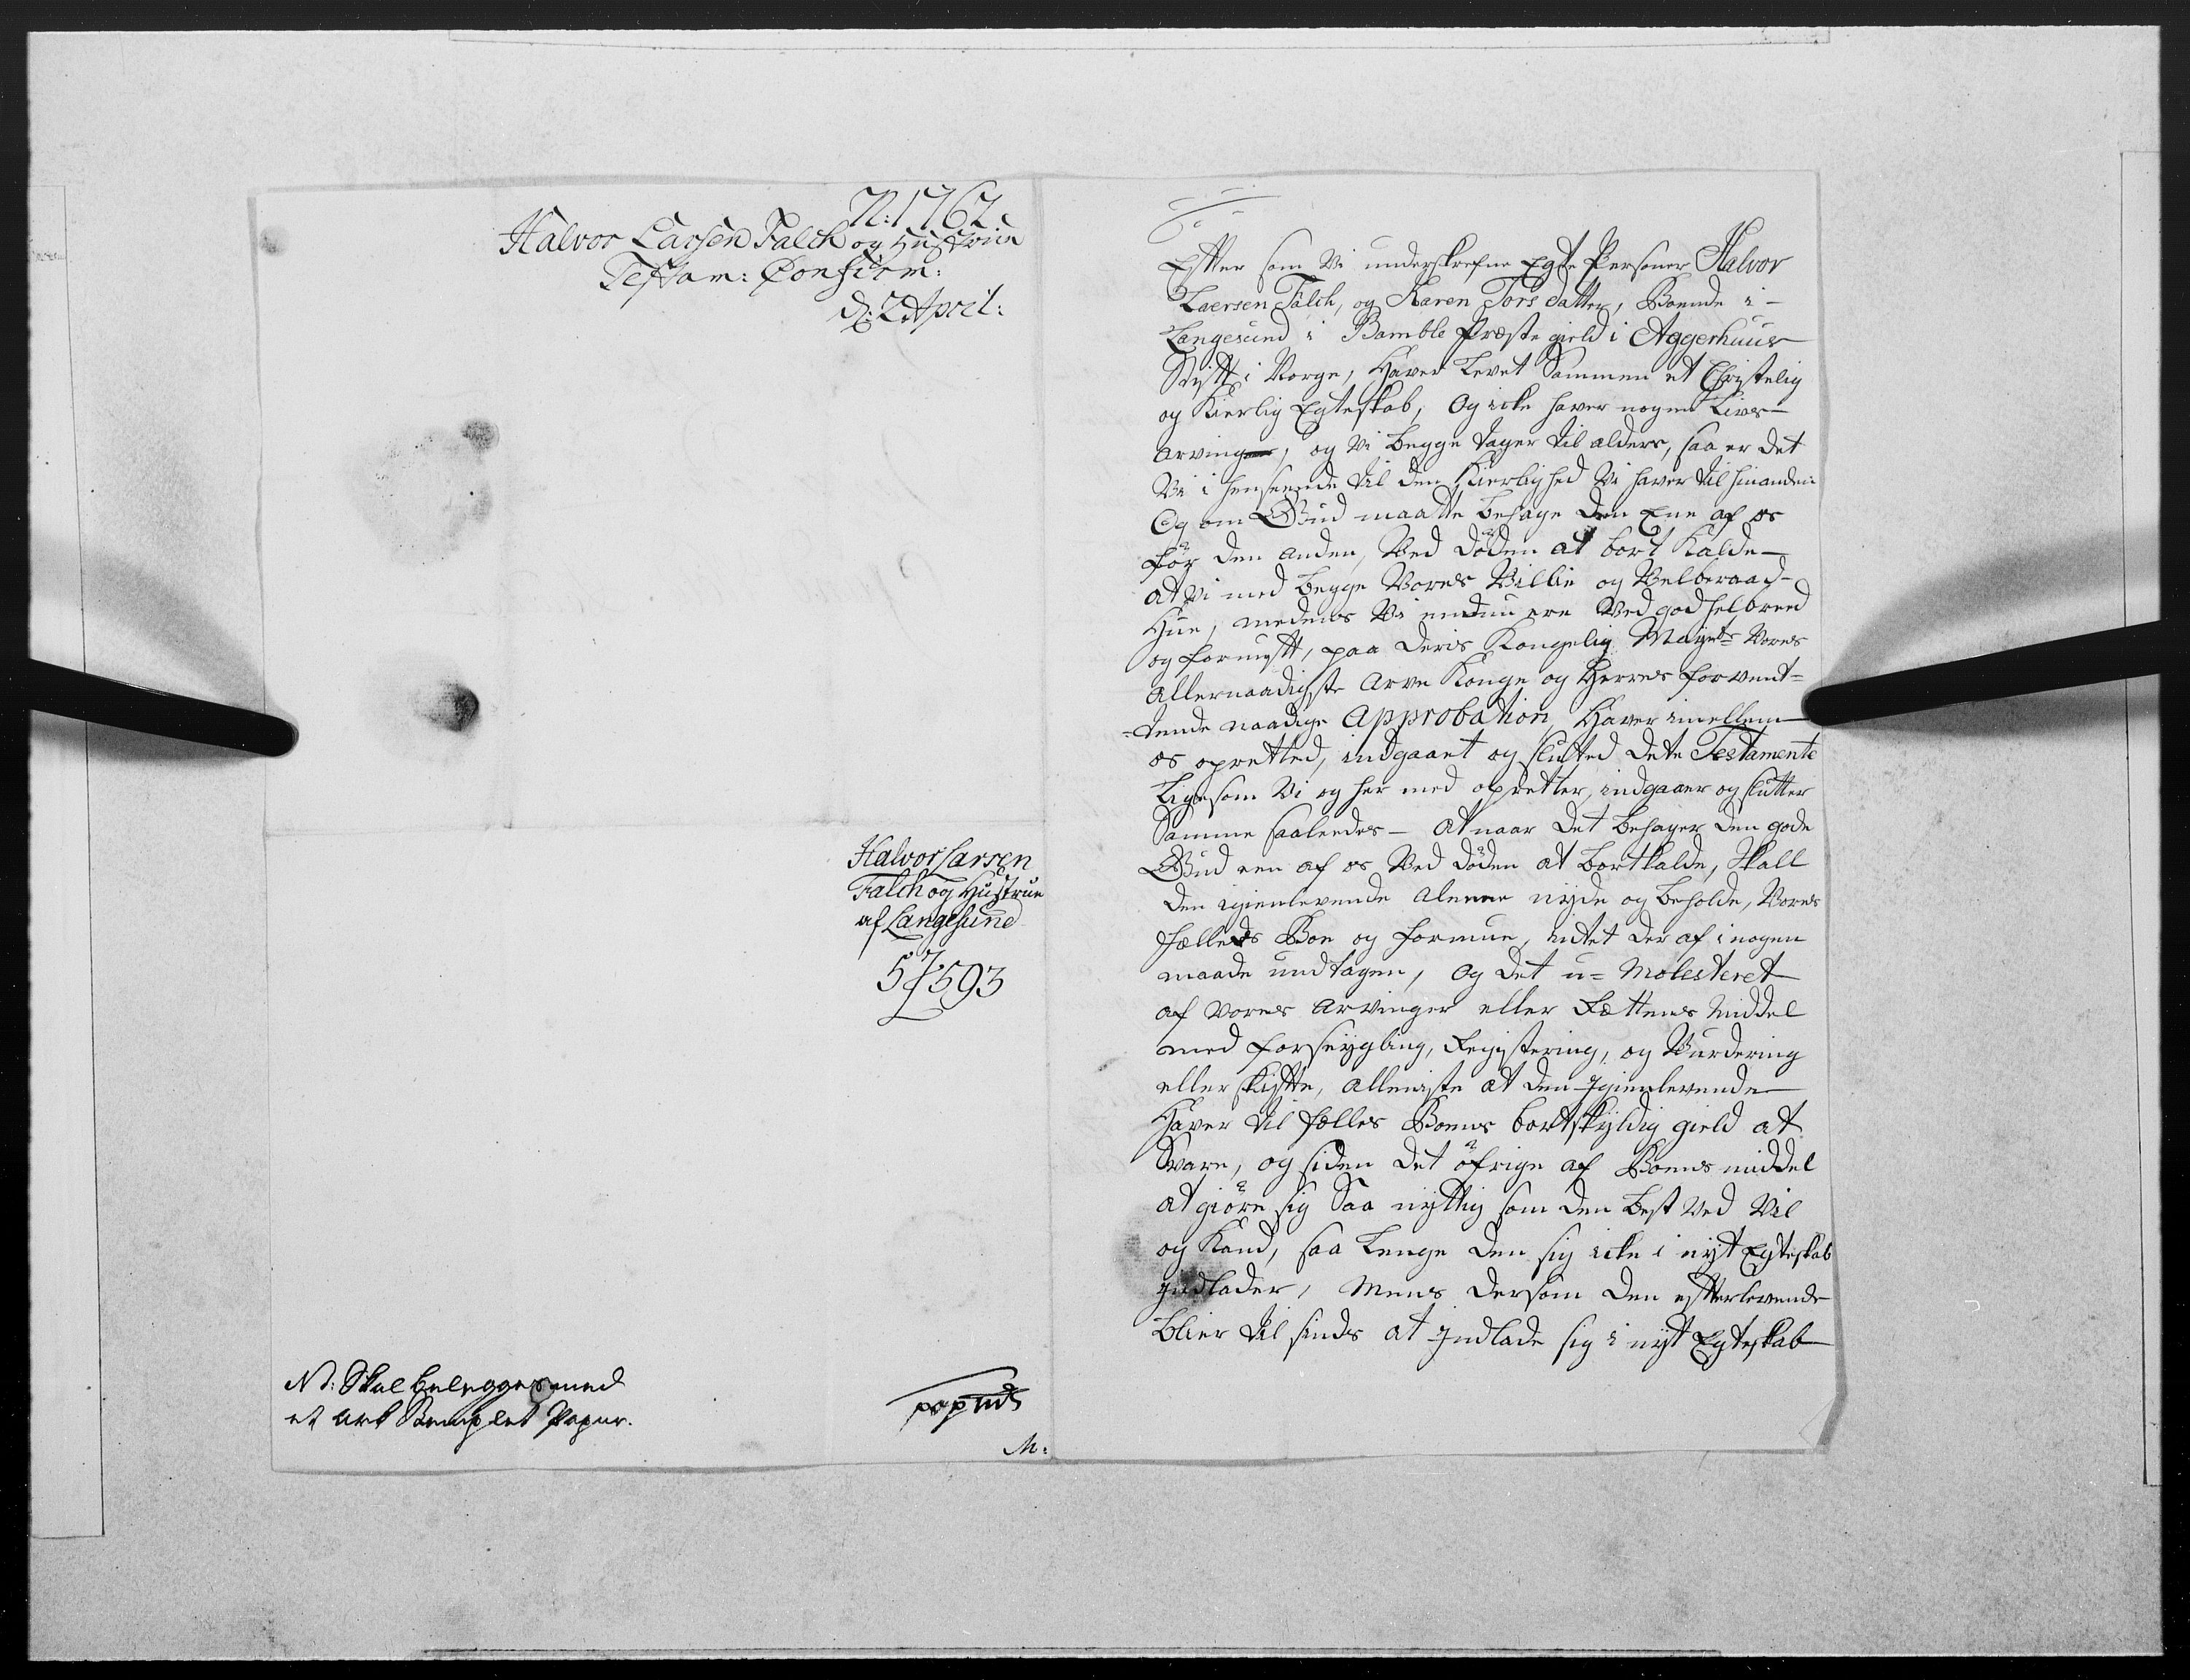 A: 1762
Halvor Larsen Falch og Hustrue
Testam: Confirm:
d: 2 April:
Halvor Larsen
Falch og Hustrue
af Langesund
593
Nb: Skal belegges med
et Ark Stemplet Papiir.
M:
Efter som Vi underskrefne Egte Personer Halvor
Laersen Falch, og Karen Tors datter, Boende i
Langesund i Bamble Præste gield i Aggerhuus
Stift i Norge, Haver Levet Sammen et Christelig
og Kierlig Egteskab, Og icke haver nogen Livs-
arvinger, og Vi begge tager til alders, saa er det
Vi i henseende til den Kierlighed Vi haver til hinanden
Og om Gud maatte behage den Ene af os
før den anden, Ved døden at bort Kalde
at Vi med begge Vores Villie og Velberaad-
Hue, medens Vi endnu ere Ved god helbreed
og fornuft, paa deris Kongelig Mayts Vores
Allernaadigste Arve Konge og Herres forvent-
-tende naadige Approbation, Haver imellem
os opretted, indgaaet og sluttet dete Testamente
Ligesom Vi og her med opretter, indgaaer og slutter
Samme saaleedes - At naar det behager den gode
Gud een af os Ved døden at bortkalde, Skall
den igienlevende alene nyde og beholde, Vores
fælleds Boe og formue, intet der af i nogen
maade undtagen, og det u-Molesteret
af Vores Arvinger eller Rættens Middel
med forseygling, Registering, og Vurdering
eller skifte, alleniste at den Igienlevende
Haver til fælles Boens bortskyldig gield at
Svare, og siden det øfrige af Boens middel
at giøre sig Saa nyttig som den best Ved Vil
og Kand, saa Lenge den sig icke i nyt Egteskab
Indlader, Mens dersom den efterlevende
blier til sinds at Indlade sig i nyt Egteskab